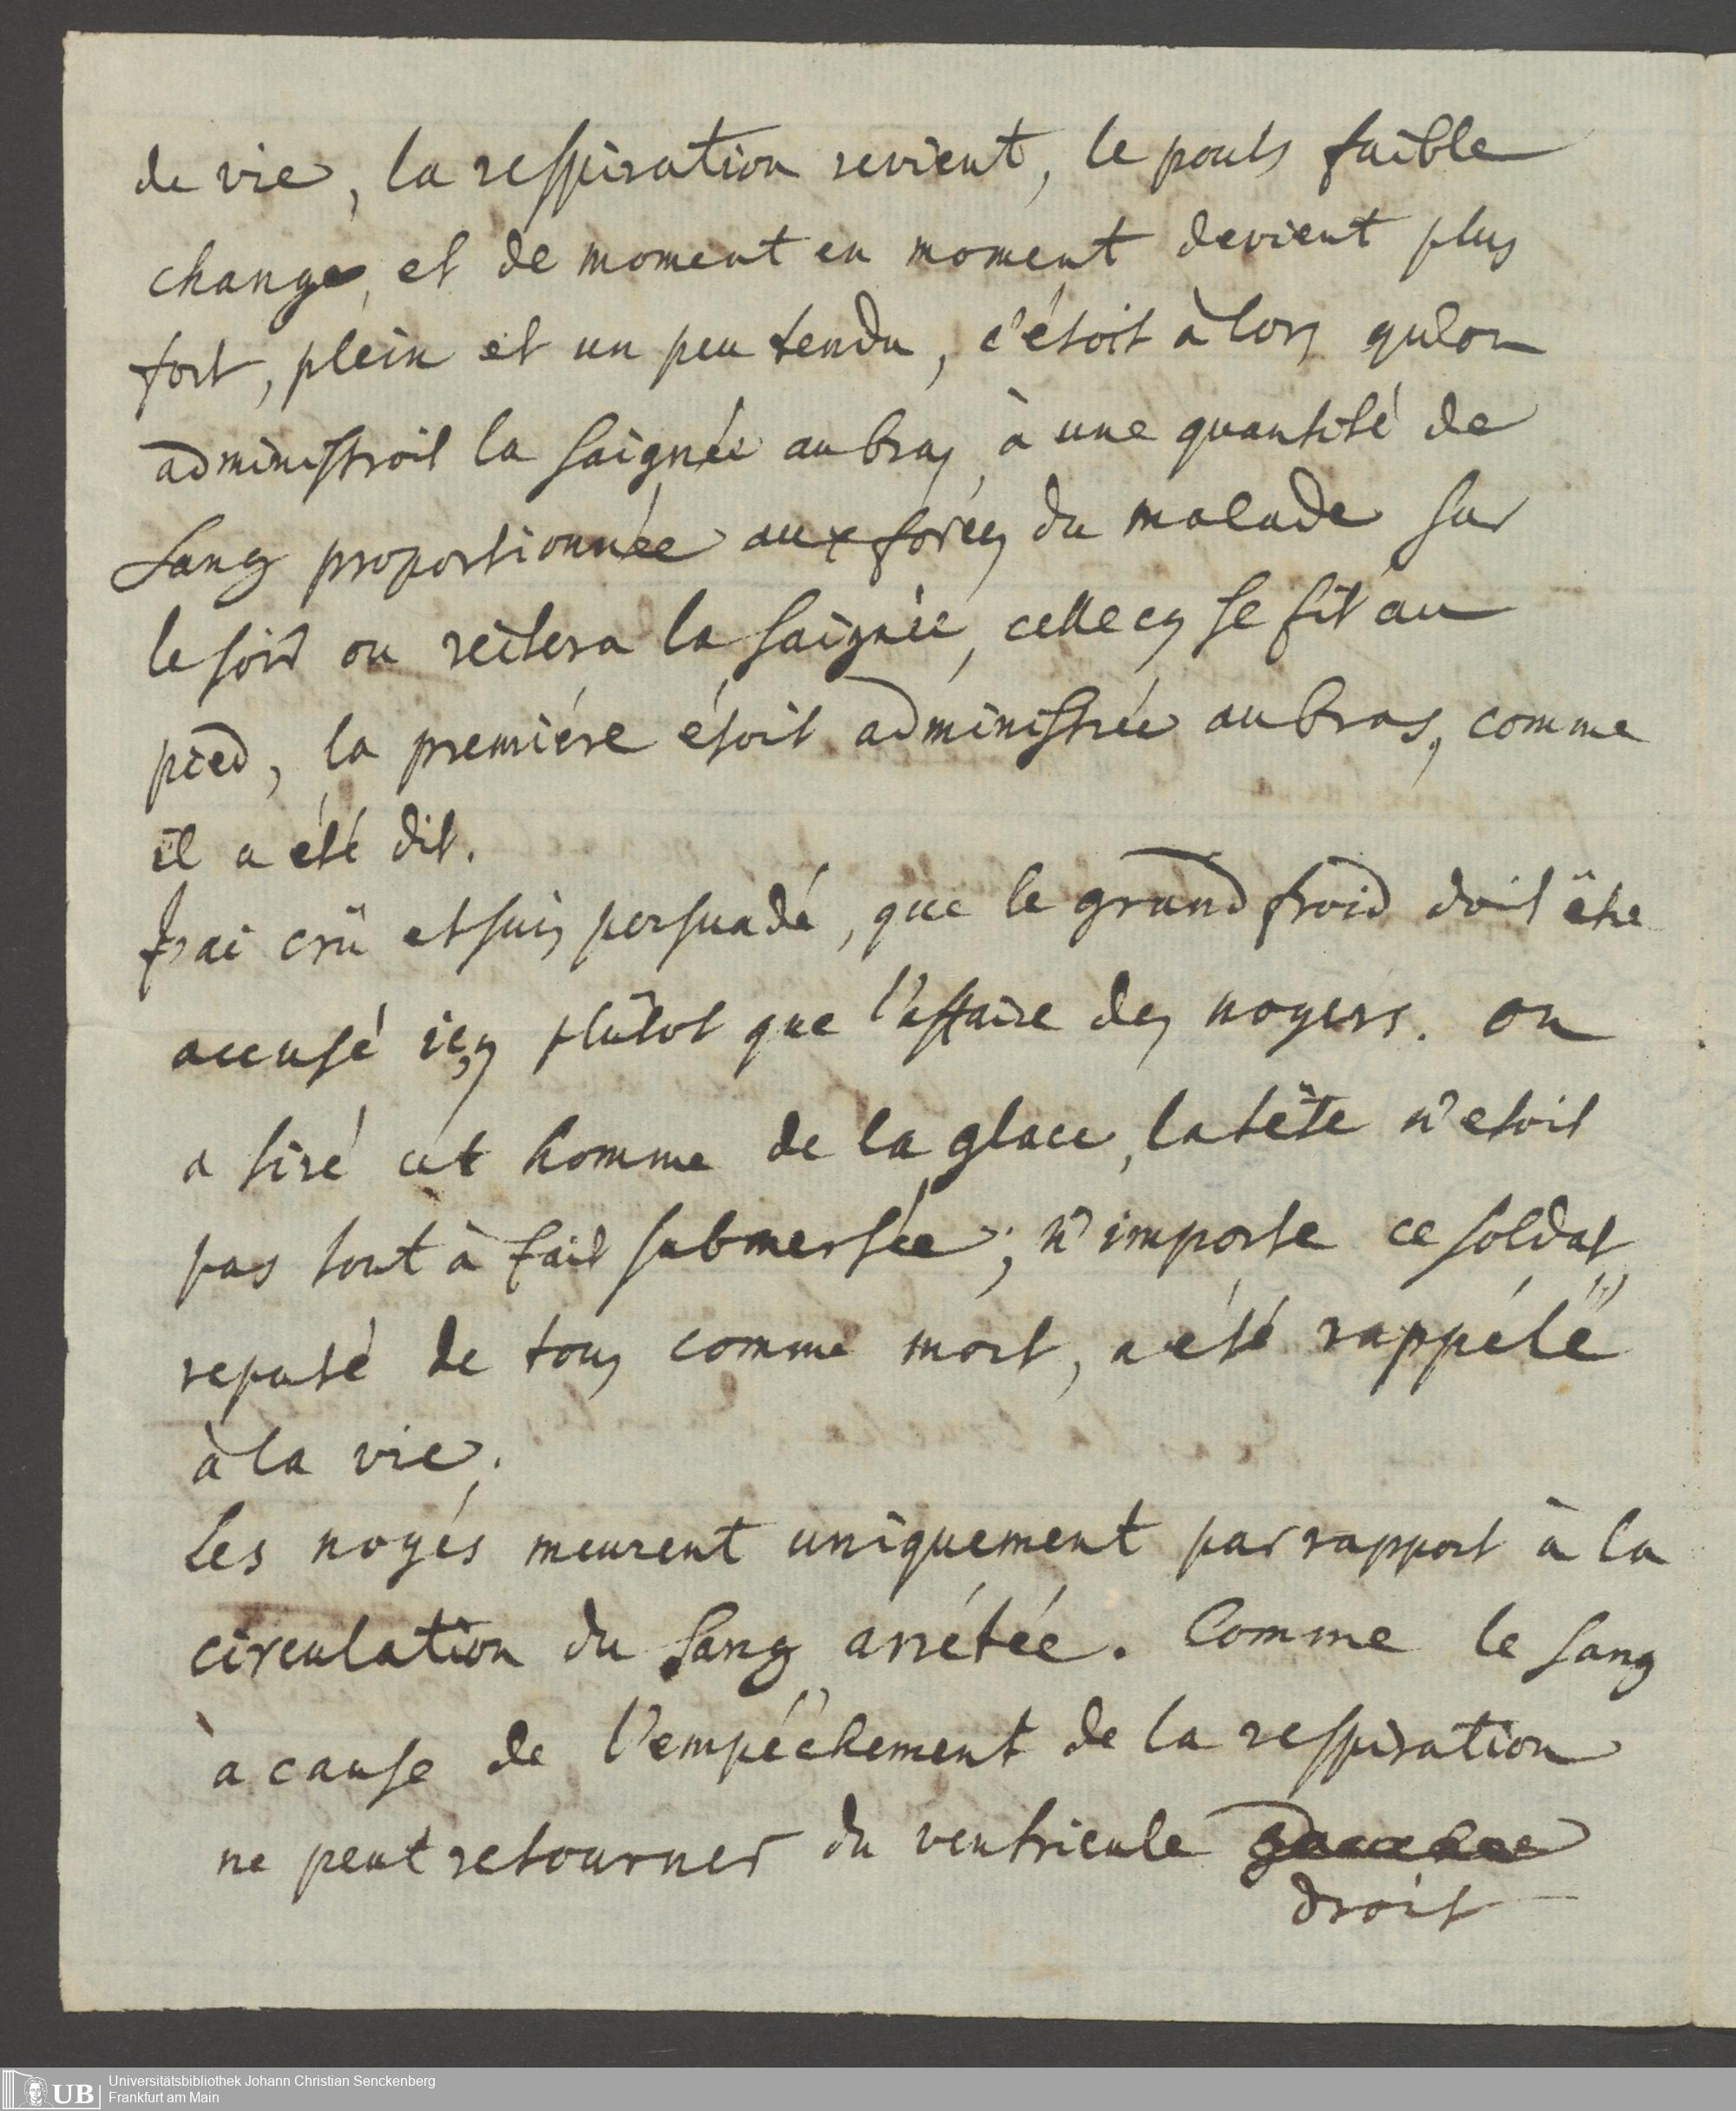 de vie, la respiration revient, le pouls faible
change, et de moment en moment devient plus
fort, plein et un peu tendu, c'étoit àlors qulon
administroit la saignée au bras, à une quantité de
Sang proportionnée aux forces du malade sur
le soir on reitera la saignée, celle cy se fit au
pied, la premiére étoit administrée au bras, comme
il a été dit.
J'ai crû et suis persuadé, que le grand froid doit être
accusé icy plûtot que l'affaire des noyers. on
a tiré cét homme de la glace, la tête n'etoit
pas tout à fait submersée; n'importe ce soldat
reputé de tous comme mort, a eté rappélé
à la vie.
Les noyés meurent uniquement par rapport à la
circulation du Sang arrétée. Comme le sang
à cause de l'empéchement de la respiration
ne peut retourner du ventricule gauche
droit
Universitätsbibliothek Johann Christian Senckenberg
Frankfurt am Main
UB